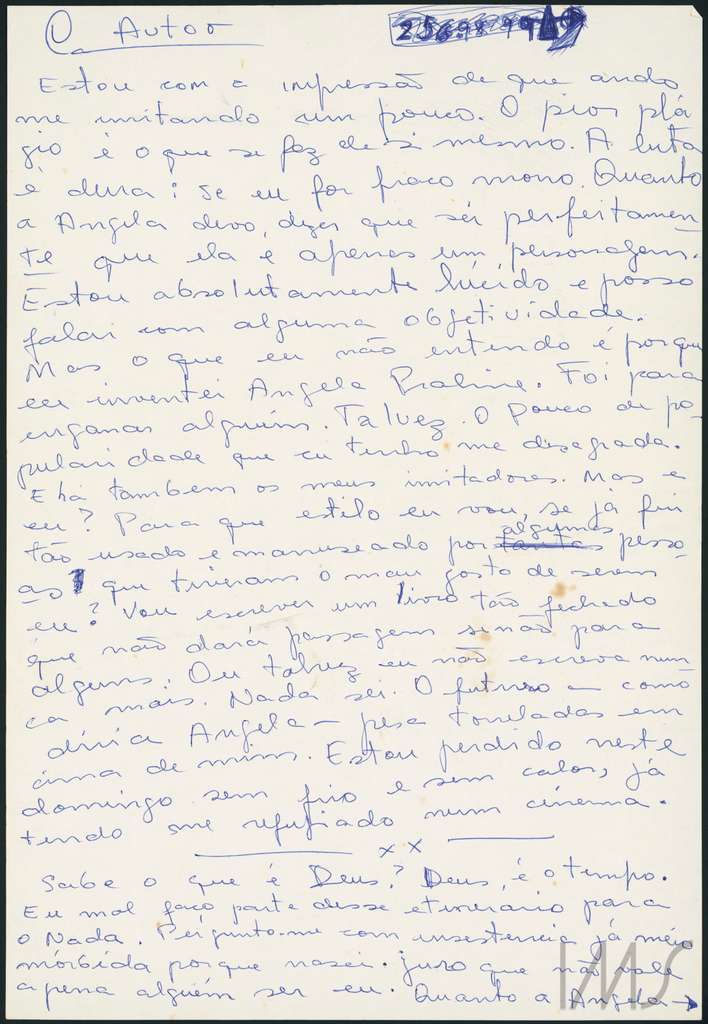 O Autor
Estou com a impressão de que ando
me imitando um pouco. O pior plá
gio é o que se faz de si mesmo. A luta
é dura: se eu for fraco morro. Quanto
a Angela devo, dizer que sei perfeitamen-
te que ela é apenas um personagem.
Estou absolutamente lúcido e posso
falar com alguma objetividade.
Mas o que eu não entendo é porque
eu inventei Angela Praline. Foi para
enganar alguém. Talvez. O Pouco de po-
pularidade que eu tenho me desagrada.
E há também os meus imitadores. Mas e
eu? Para que estilo eu vou, se já fui
tão usado e manuseado por algumas pesso-
as que tiveram o mau gosto de serem
eu? Vou escrever um livro tão fechado
que não dará passagem senão para
alguns. Ou talvez eu não escreva nun
ca mais. Nada sei. O futuro — como
diria Angela — pesa toneladas em
cima de mim. Estou perdido neste
domingo sem frio e sem calor, já
tendo me refugiado num cinema.
x x
Sabe o que é Deus? Deus, é o tempo.
Eu mal faço parte desse etinerário para
o Nada. Pergunto-me com insestencia já meio
mórbida porque nasci. Juro que não vale
a pena alguém ser eu. Quanto a Angela →
IMS